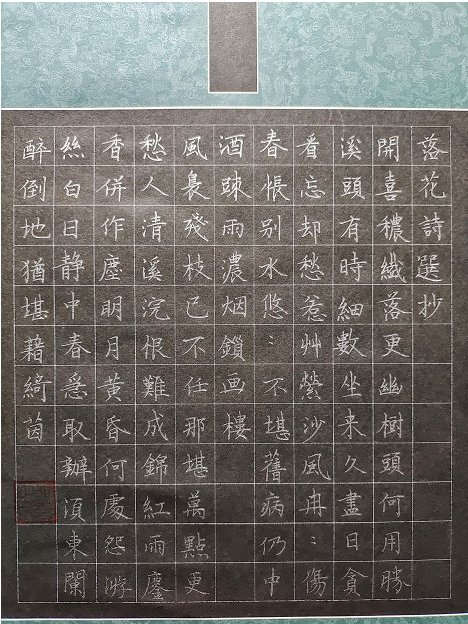 落花詩選抄
開喜穠纖落更幽樹頭何用勝
溪頭有時細數坐来久盡日貪
看忘却愁惹艸縈沙風冉〻傷
春悵别水悠〻不堪舊病仍中
酒疎雨濃烟鎖画樓
風裊殘枝已不任那堪萬點更
愁人清溪浣恨難成錦紅雨鏖
香併作塵明月黄昏何處怨游
絲白日静中春急取辦湏東闌
醉倒地猶堪藉綺茵